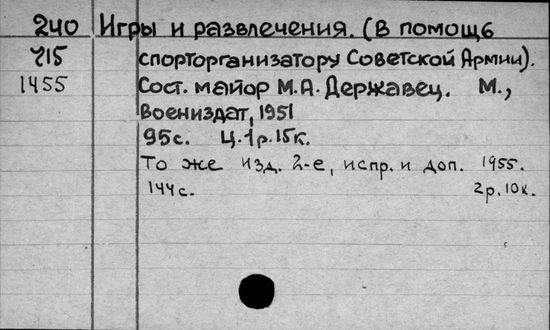 240 Игры и развлечения. (В помощь
715 спорторганизатору Советской Армии).
1455 Сост. майор М.А. Державец. М.,
Воениздат, 1951
95с. Ц. 1р. 15к.
То же изд. 2-е, испр. и доп. 1955.
144с. 2р. 10к.